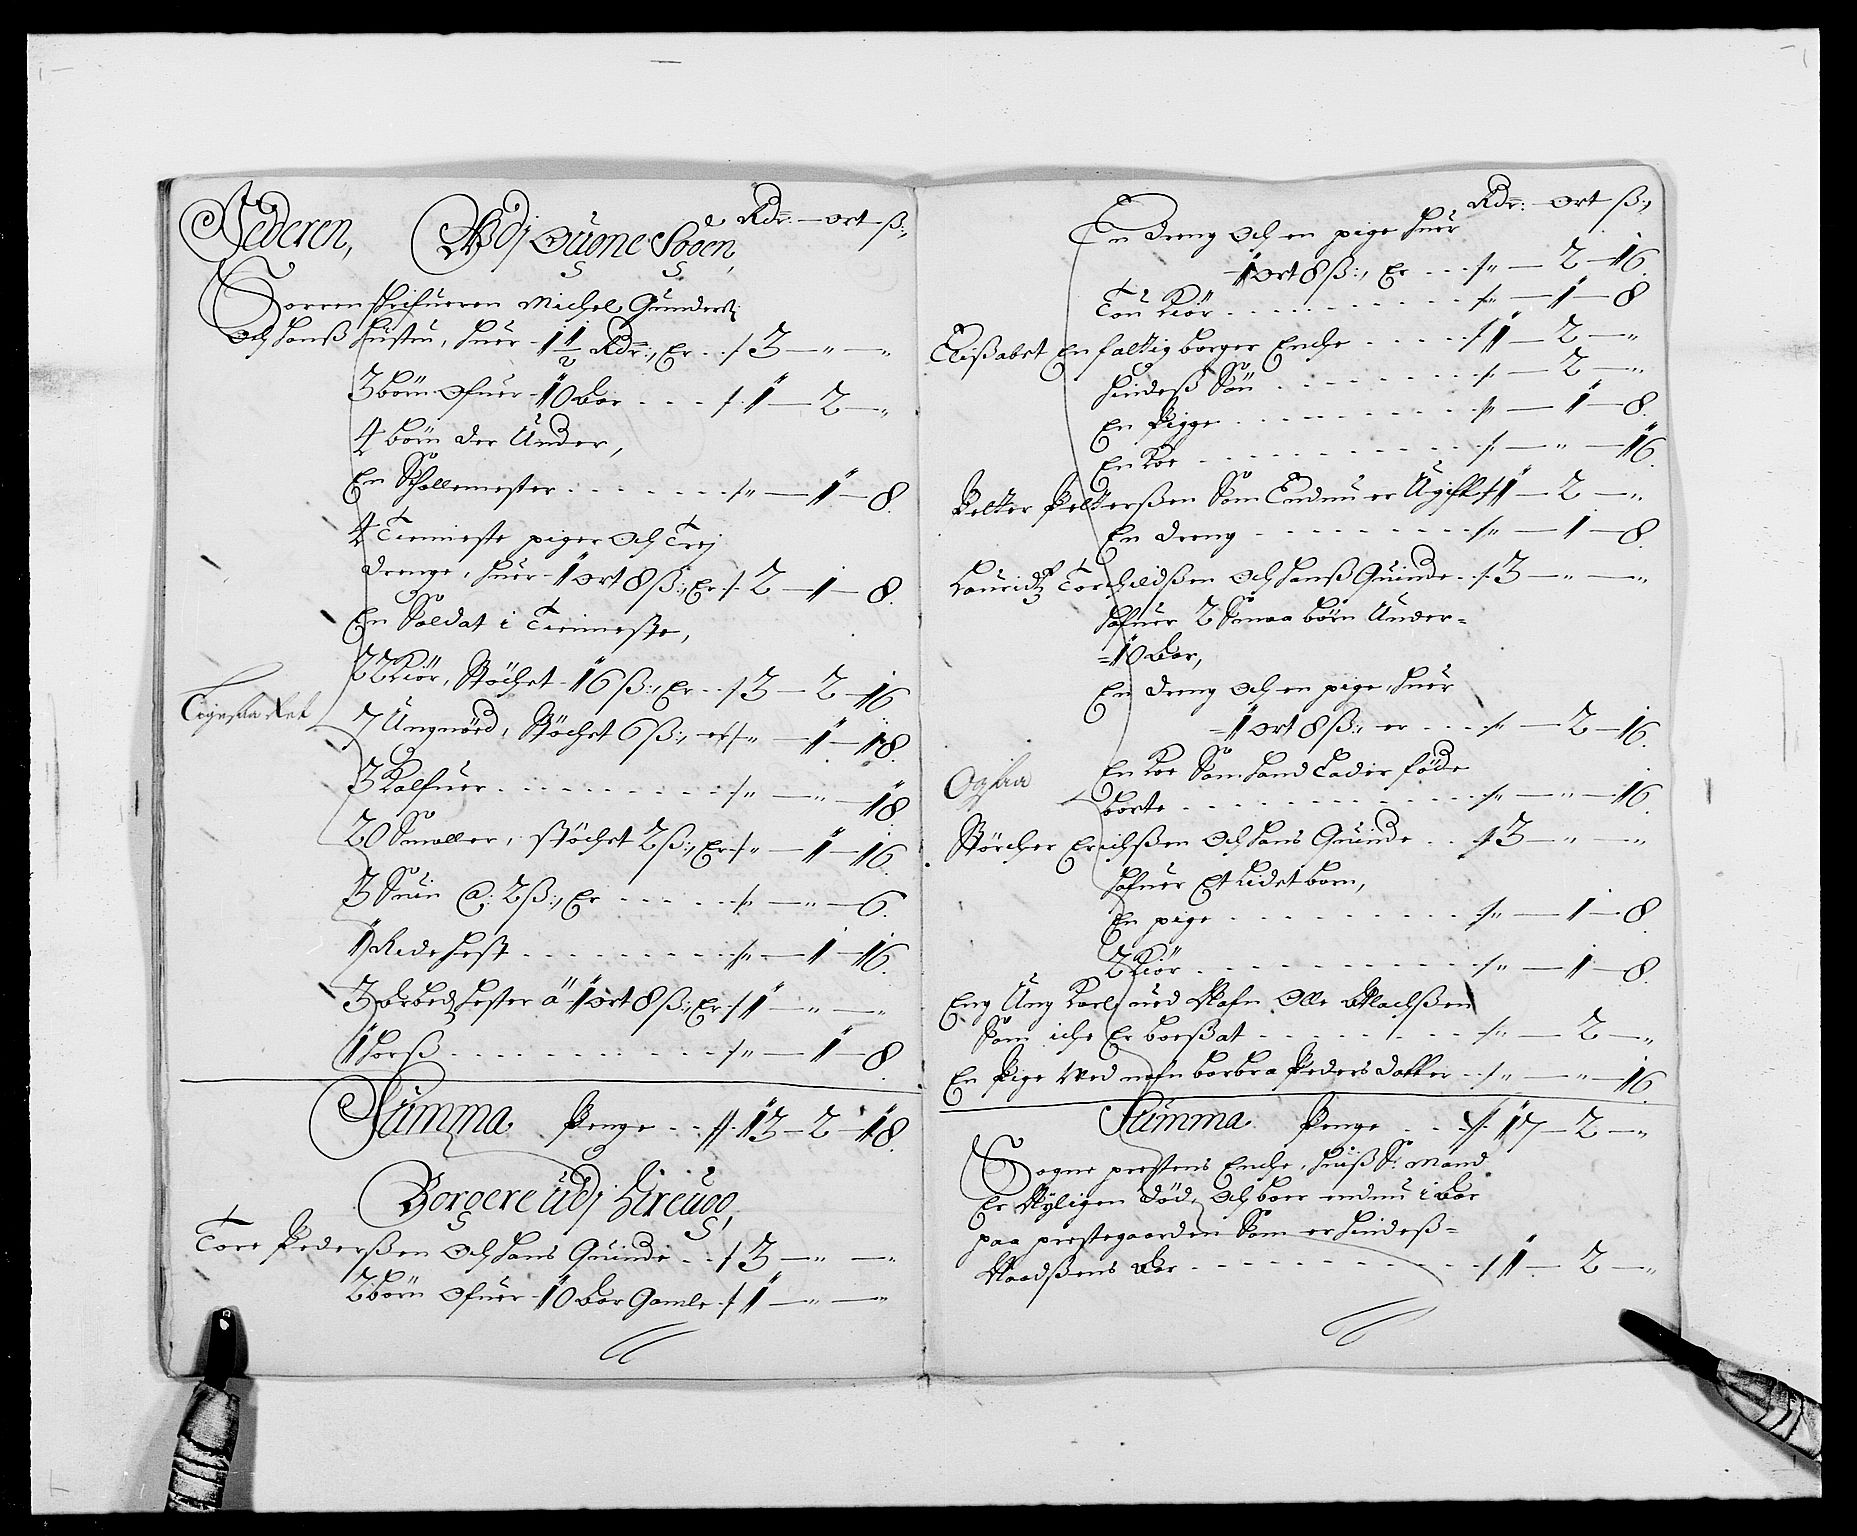 Jederen, Udj Ougne Sogen, Rdr: — ort — ß:,
Sorrenskrifueren Michel Gunders:
och hanß hustru, huer 1 1/2 Rdr:, Er .. / 3 — " — "
3 börn ofuer 10 Aar . . . / 1 — 2 — "
4 börn der Under,
En Skollemester . . . . . . / " — 1 — 8.
4 Tienneste piger och Trej
drenge, huer 1 ort 8 ß:, Er / 2 — 1 — 8.
En Soldat i Tienneste,
22 Kiör, Stöchet 16 ß:, Er .. / 3 — 2 — 16
7 Ungnöed, Stöchet 6 ß:, er / " — 1 — 18.
3 Kalfuer . . . . . . . . / " — " — 18.
20 Smaller, stöchet 2 ß:, Er / " — 1 — 16.
3 Suin @: 2 ß:, Er . . . . . / " — " — 6.
1 Ride hest . . . . . . . . / " — 1 — 16.
3 Arbedz hester a 1 ort 8 ß:, Er / 1 — " — "
1 horß . . . . . . . . . / " — 1 — 8.
Summa Penge . . // 13 — 2 — 18.
Borgere udj
Tore Pederßen och hans Quinde . . / 3 — " — "
2 börn ofuer 10 Aar Gamle / 1 — " — "
Rdr: — ort — ß:,
En dreng och en pige huer
1 ort 8 ß:, Er . . . / " — 2 — 16.
Tou Kiör . . . . . . . . / " — 1 — 8
Elißabet En fattig borger Enche . . . . / 1 — 2 — "
hindeß Sön . . . . . . . / " — 2 — "
En Pigge . . . . . . . . / " — 1 — 8.
En Koe . . . . . . . . . / " — " — 16.
Petter Petterßen Som Endnu er Ugift / 1 — 2 — "
En dreng . . . . . . . . / " — 1 — 8.
Lauridtz Torchildßen och hanß Quinde . / 3 — " — "
hafuer 2 Smaa börn Under
10 Aar,
En dreng och en pige, huer
1 ort 8 ß:, er . . . . / " — 2 — 16.
Ogsaa
En Koe Som hand Lader föde
borte . . . . . . . . . / " — " — 16.
Störcher Erichßen och hans Quinde . . / 3 — " — "
hafuer Et Lidet barn,
En pige . . . . . . . . / " — 1 — 8.
2 Kiör . . . . . . . . . / " — 1 — 8.
Eng Ung Karl ued Nafn Olle
Som iche Er boeßat . . . . . . / " — 2 — "
En Pige Wed nafn barbra Peders datter . . / " — " — 16.
Summa Penge . . . // 17 — 2 — "
Sogne prestens Enche, huiß Sl: Mand
Er Nyligen död, och boer endnu i Aar
paa prestegaarden Som er hindeß
Naadßens Aar . . . . . . . . / 1 — 2 — "